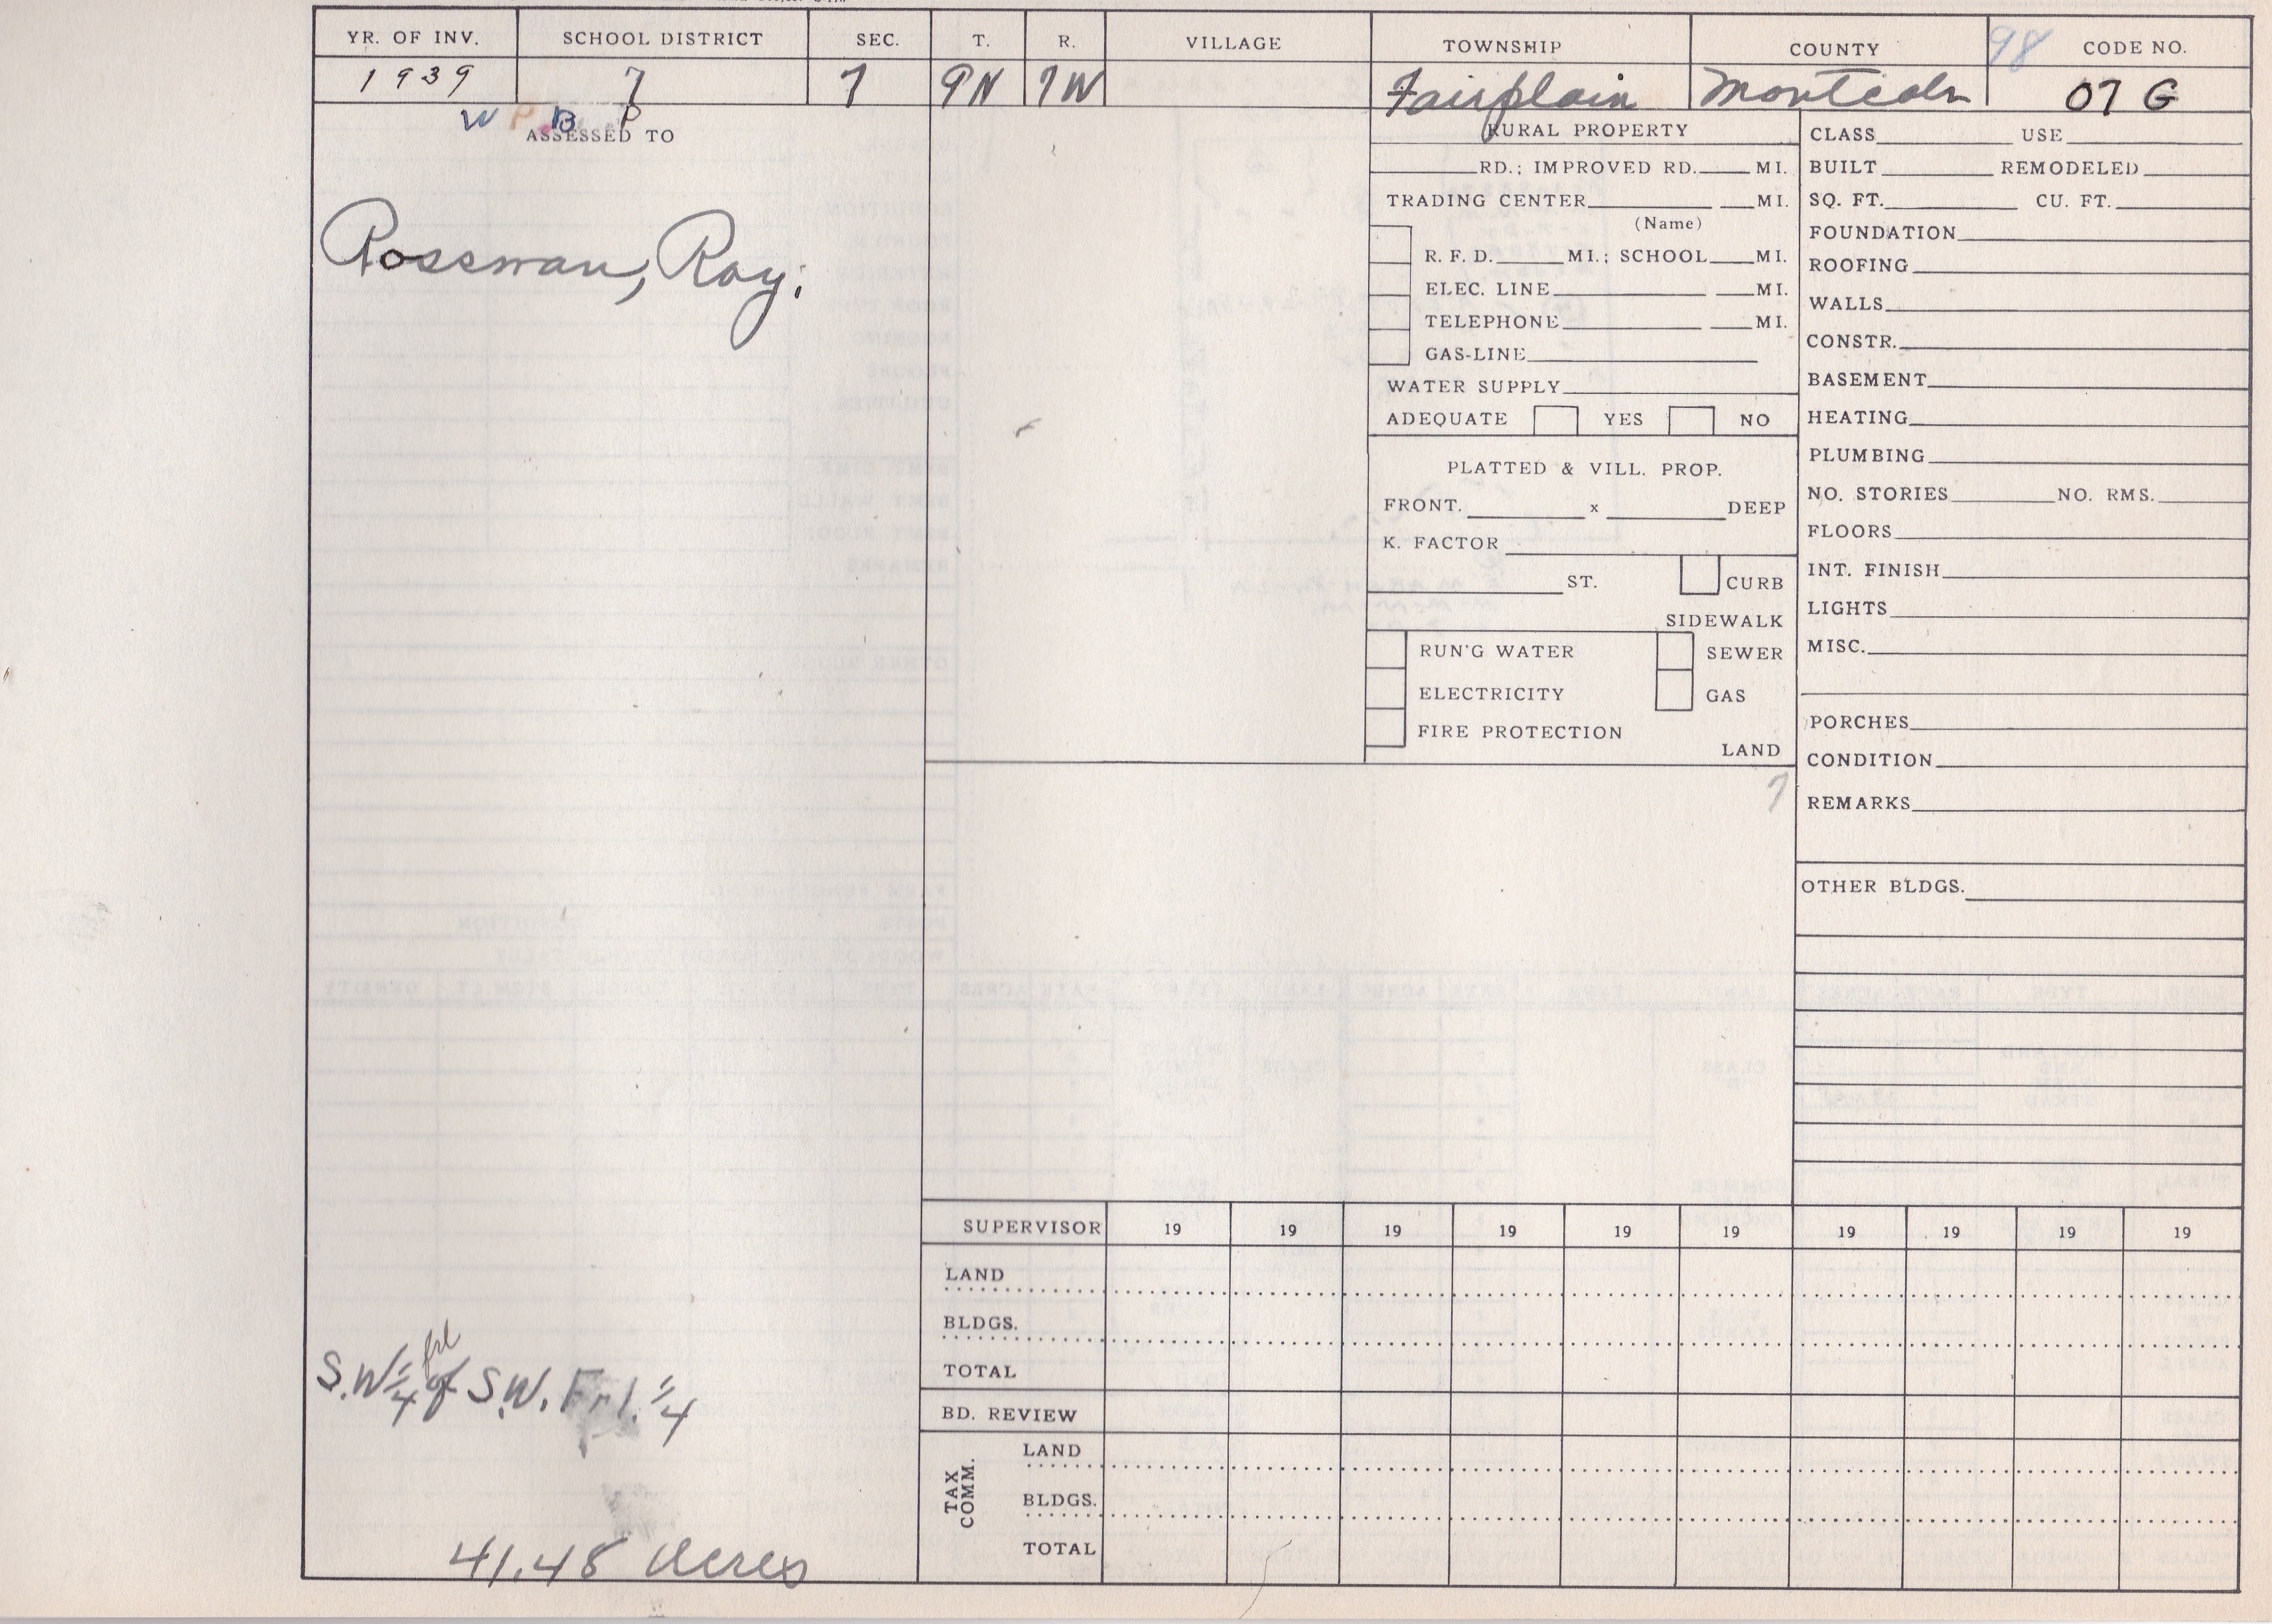 YR. OF INV. SCHOOL DISTRICT SEC. T. R. VILLAGE TOWNSHIP COUNTY 98 CODE NO.
1939 7 7 9N 7W Fairplain Montcalm 07 G
W P B P
ASSESSED TO
Rossman, Ray;
S.W 1/4 frl of S.W. Frl. 1/4
41.48 Acres
RURAL PROPERTY
RD.; IMPROVED RD. MI.
TRADING CENTER MI.
(Name)
R. F. D. MI.; SCHOOL MI.
ELEC. LINE MI.
TELEPHONE MI.
GAS-LINE
WATER SUPPLY
ADEQUATE YES NO
PLATTED & VILL. PROP.
FRONT. x DEEP
K. FACTOR
ST. CURB
SIDEWALK
RUN'G WATER SEWER
ELECTRICITY GAS
FIRE PROTECTION
LAND
7
CLASS USE
BUILT REMODELED
SQ. FT. CU. FT.
FOUNDATION
ROOFING
WALLS
CONSTR.
BASEMENT
HEATING
PLUMBING
NO. STORIES NO. RMS.
FLOORS
INT. FINISH
LIGHTS
MISC.
PORCHES
CONDITION
REMARKS
OTHER BLDGS.
SUPERVISOR 19 19 19 19 19 19 19 19 19 19
LAND
BLDGS.
TOTAL
BD. REVIEW
TAX COMM.
LAND
BLDGS.
TOTAL